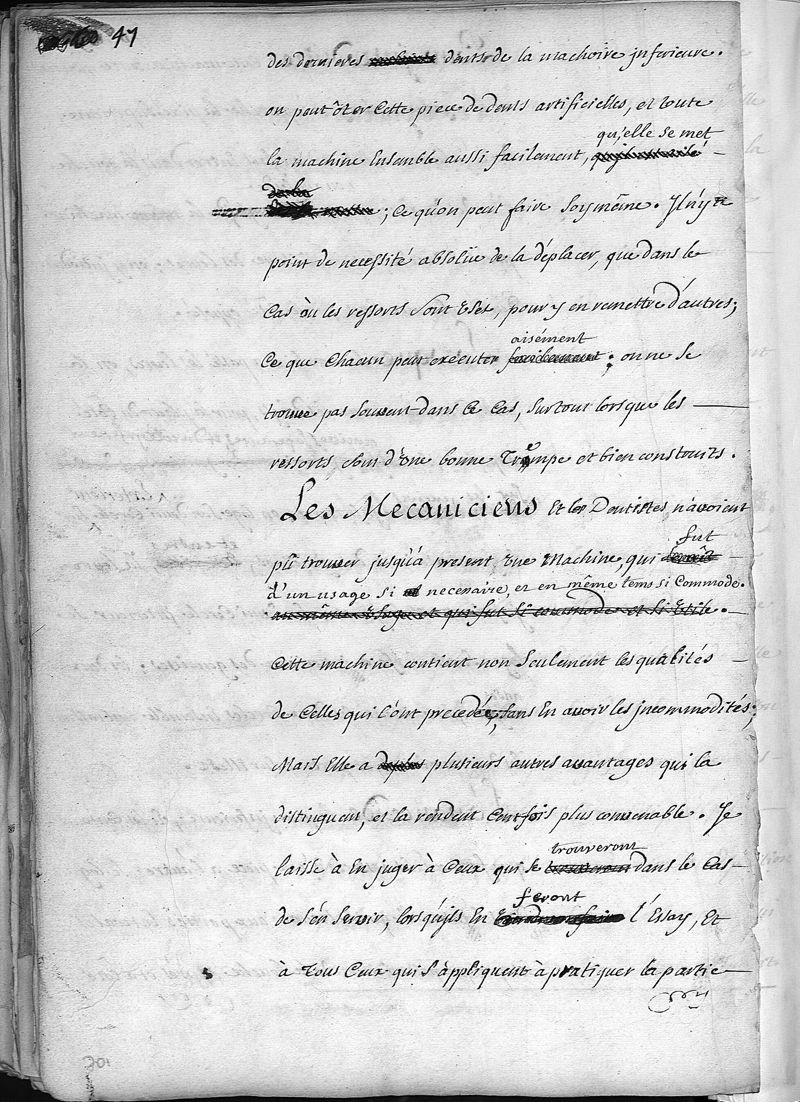 47
des dernieres dents de la machoire jnferieure.
on peut ôter cette piece de dents artificielles, et toute
qu'elle se met
la machine Ensemble aussi facilement,
; ce qu'on peut faire soy même. Jl n'y a
point de necessité absolüe de la déplacer, que dans le
Cas où les ressorts sont Usez, pour y en remettre d'autres;
aisément
Ce que Chacun peut executer facilement; on ne se
trouve pas souvent dans ce cas, surtout lorsque les
ressorts, sont d'Une bonne Trempe et bien construits.
Les Mecaniciens et les Dentistes, n'avoient
fut
pû trouver jusqu'a present Une Machine, qui seroit
d'un usage si necessaire, et en même tems si Commode.
au même Usage et qui fut si commode et si Utile.
Cette machine contient non seulement les qualités
de Celles qui l'ónt precedée, sans En avoir les jncommodités;
Mais Elle a plusieurs autres avantages qui la
distinguent, et la rendent Cent fois plus convenable. Je
trouveront
laisse à En juger à Ceux qui se trouveront dans le Cas
feront
de s'én servir, lorsqu'jls En l'Essay, Et
à Tous Ceux qui s'àppliquent à pratiquer la partie